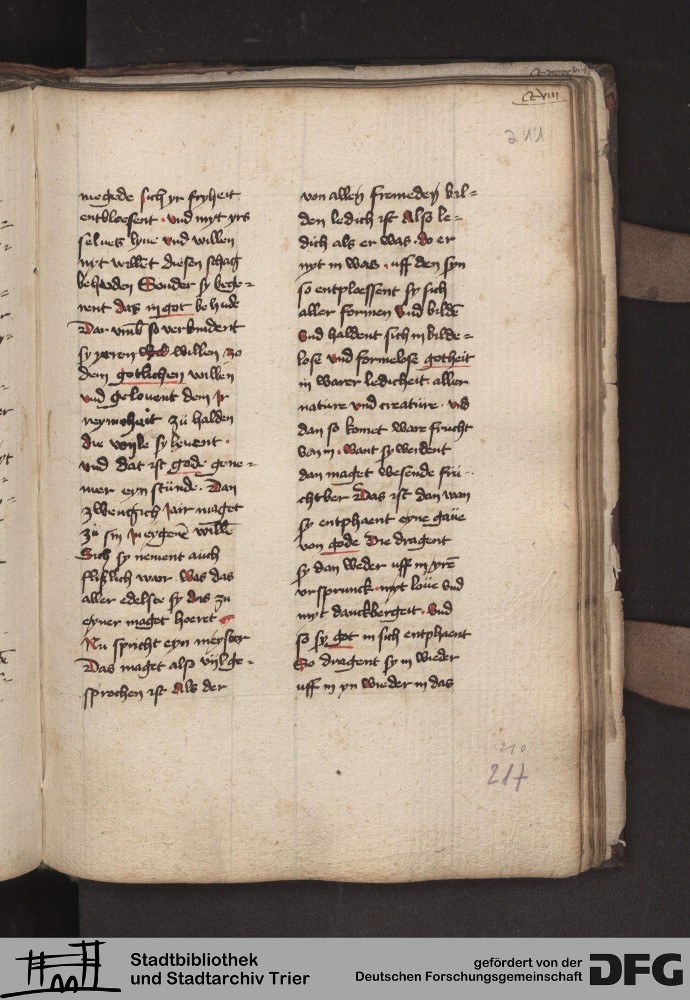 CCviii
211
megede sich yn fryheit
entbloesent · vnd myt yrs
selues lyue vnd willen
nyt willēt diesen schag
behalden Sonder sy bege-
rent das in got behude
Dar vmb so verbindent
sy yeren willen zo
dem gotlichen willen
vnd gelouent dem jr
reynicheit zü halden
die wyle sy leuent ·
vnd dat ist gode gene-
mer eyn stünde · Dan
zwentzich jair maget
zü sin in eygenē willē
Sich sy nement auch
flißlich war · was das
aller edelste sy das zu
eyner maget hoeret
Nu spricht eyn meyster
Das maget also vyl ge-
sprochen ist Als der
von allen fremeden bil-
den ledich ist Also le-
dich als er was · do er
nyt in was · uff den syn
so entploessent sy sich
aller formen vnd bildē
vnd haldent sich in bilde-
lose vnd formelose gotheit
in warer ledicheit aller
nature vnd creatüre · vnd
dan so komet ware frucht
van in · want sy werdent
dan maget wesende frü-
chtber Das ist dan wan
sy entphaent eyne gaüe
von gode Die dragent
sy dan weder uff in yrē
vrsprunck · myt loüe vnd
myt danckbergeit · vnd
so sy got in sich entphaent
So dragent sy in wieder
uff in yn wieder in das
210
217
Stadtbibliothek
und Stadtarchiv Trier
gefördert von der
Deutschen Forschungsgemeinschaft
DFG